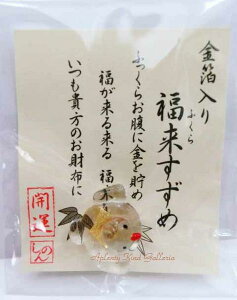 金箔入り
福来すずめ
ふくら
ふっくらお腹に金を貯め
福が来る来る 福来
いつも貴方のお財布に
開運
のしん
Aplenty Kind Galleria